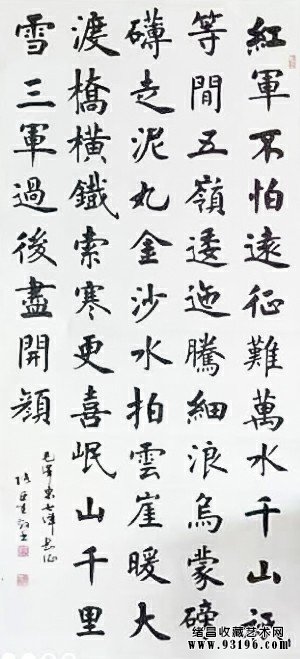 紅軍不怕遠征難萬水千山祇
等間五嶺逶迤騰細浪烏蒙磅
礡走泥丸金沙水拍雲崖暖大
渡橋橫鐵索寒更喜岷山千里
雪三軍過後盡開顏
毛澤東七律長征
绪昌收藏艺术网
www.93196.com